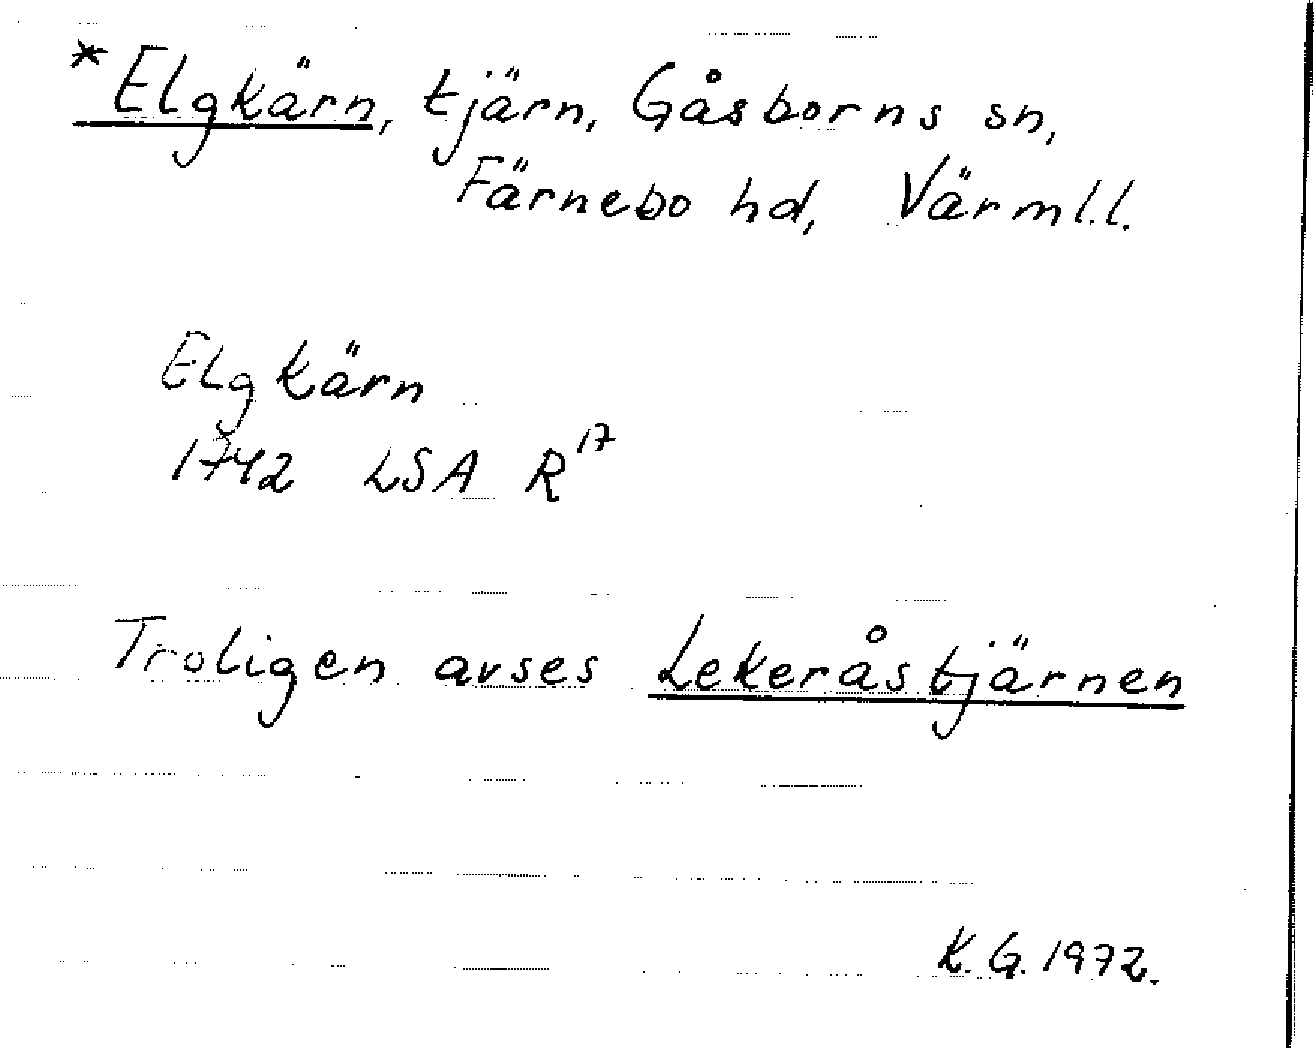 *Elgkärn, tjärn, Gåsborns sn,
Färnebo hd, Värml.l.
Elgkärn
1742 LSA R17
Troligen avses Lekeråstjärnen
K.G. 1972.